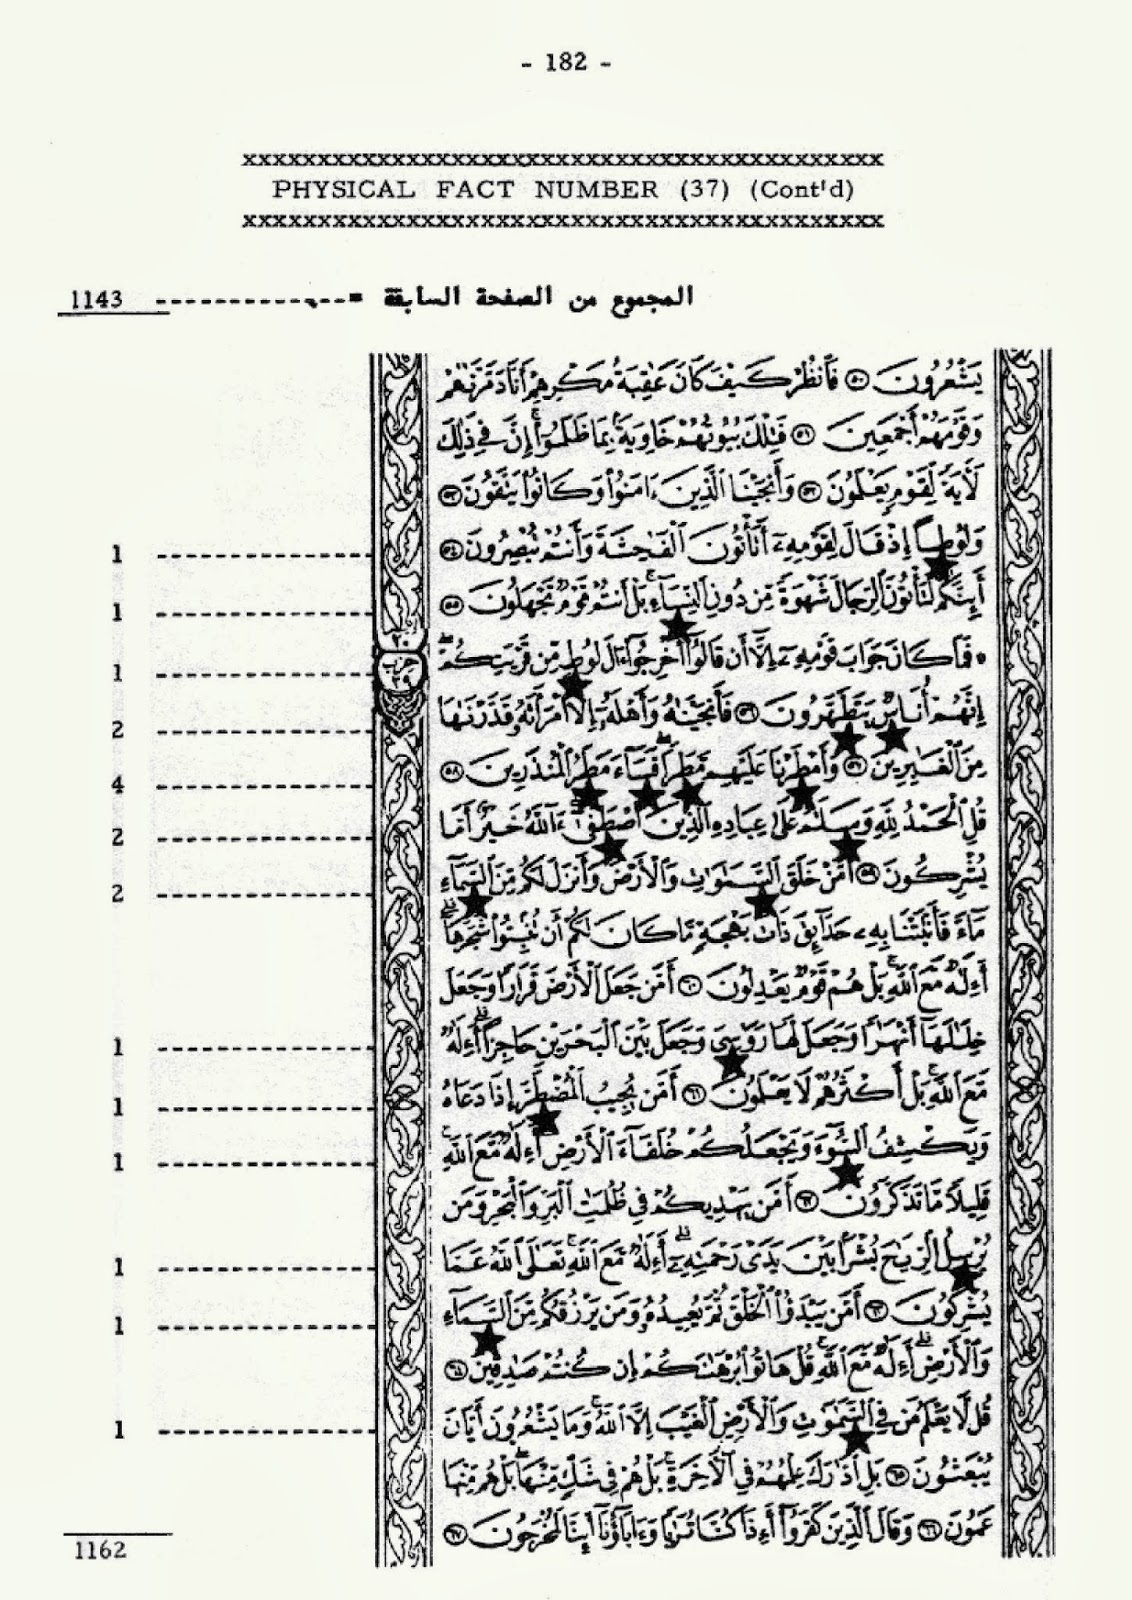 - 182 -
xxxxxxxxxxxxxxxxxxxxxxxxxxxxxxxxxxxxxxxxxxx
PHYSICAL FACT NUMBER (37) (Cont'd)
xxxxxxxxxxxxxxxxxxxxxxxxxxxxxxxxxxxxxxxxxxx
1143 ------------- = المجموع من الصفحة السابقة
يَشْعُرُونَ ۝٥٠ فَٱنظُرْ كَيْفَ كَانَ عَٰقِبَةُ مَكْرِهِمْ أَنَّا دَمَّرْنَٰهُمْ
وَقَوْمَهُمْ أَجْمَعِينَ ۝٥١ فَتِلْكَ بُيُوتُهُمْ خَاوِيَةًۢ بِمَا ظَلَمُوٓا۟ ۗ إِنَّ فِى ذَٰلِكَ
لَءَايَةً لِّقَوْمٍ يَعْلَمُونَ ۝٥٢ وَأَنجَيْنَا ٱلَّذِينَ ءَامَنُوا۟ وَكَانُوا۟ يَتَّقُونَ ۝٥٣
1 وَلُوطًا إِذْ قَالَ لِقَوْمِهِۦٓ أَتَأْتُونَ ٱلْفَٰحِشَةَ وَأَنتُمْ تُبْصِرُونَ ۝٥٤
1 أَئِنَّكُمْ لَتَأْتُونَ ٱلرِّجَالَ شَهْوَةً مِّن دُونِ ٱلنِّسَآءِ ۚ بَلْ أَنتُمْ قَوْمٌ تَجْهَلُونَ ۝٥٥
1 حزب ٣٩ فَمَا كَانَ جَوَابَ قَوْمِهِۦٓ إِلَّآ أَن قَالُوٓا۟ أَخْرِجُوٓا۟ ءَالَ لُوطٍ مِّن قَرْيَتِكُمْ ۖ
2 إِنَّهُمْ أُنَاسٌ يَتَطَهَّرُونَ ۝٥٦ فَأَنجَيْنَٰهُ وَأَهْلَهُۥٓ إِلَّا ٱمْرَأَتَهُۥ قَدَّرْنَٰهَا
4 مِنَ ٱلْغَٰبِرِينَ ۝٥٧ وَأَمْطَرْنَا عَلَيْهِم مَّطَرًا ۖ فَسَآءَ مَطَرُ ٱلْمُنذَرِينَ ۝٥٨
2 قُلِ ٱلْحَمْدُ لِلَّهِ وَسَلَٰمٌ عَلَىٰ عِبَادِهِ ٱلَّذِينَ ٱصْطَفَىٰٓ ۗ ءَآللَّهُ خَيْرٌ أَمَّا
2 يُشْرِكُونَ ۝٥٩ أَمَّنْ خَلَقَ ٱلسَّمَٰوَٰتِ وَٱلْأَرْضَ وَأَنزَلَ لَكُم مِّنَ ٱلسَّمَآءِ
مَآءً فَأَنۢبَتْنَا بِهِۦ حَدَآئِقَ ذَاتَ بَهْجَةٍ مَّا كَانَ لَكُمْ أَن تُنۢبِتُوا۟ شَجَرَهَآ ۗ
أَءِلَٰهٌ مَّعَ ٱللَّهِ ۚ بَلْ هُمْ قَوْمٌ يَعْدِلُونَ ۝٦٠ أَمَّن جَعَلَ ٱلْأَرْضَ قَرَارًا وَجَعَلَ
1 خِلَٰلَهَآ أَنْهَٰرًا وَجَعَلَ لَهَا رَوَٰسِىَ وَجَعَلَ بَيْنَ ٱلْبَحْرَيْنِ حَاجِزًا ۗ أَءِلَٰهٌ
1 مَّعَ ٱللَّهِ ۚ بَلْ أَكْثَرُهُمْ لَا يَعْلَمُونَ ۝٦١ أَمَّن يُجِيبُ ٱلْمُضْطَرَّ إِذَا دَعَاهُ
1 وَيَكْشِفُ ٱلسُّوٓءَ وَيَجْعَلُكُمْ خُلَفَآءَ ٱلْأَرْضِ ۗ أَءِلَٰهٌ مَّعَ ٱللَّهِ ۚ
قَلِيلًا مَّا تَذَكَّرُونَ ۝٦٢ أَمَّن يَهْدِيكُمْ فِى ظُلُمَٰتِ ٱلْبَرِّ وَٱلْبَحْرِ وَمَن
1 يُرْسِلُ ٱلرِّيَٰحَ بُشْرًۢا بَيْنَ يَدَىْ رَحْمَتِهِۦٓ ۗ أَءِلَٰهٌ مَّعَ ٱللَّهِ ۚ تَعَٰلَى ٱللَّهُ عَمَّا
1 يُشْرِكُونَ ۝٦٣ أَمَّن يَبْدَؤُا۟ ٱلْخَلْقَ ثُمَّ يُعِيدُهُۥ وَمَن يَرْزُقُكُم مِّنَ ٱلسَّمَآءِ
وَٱلْأَرْضِ ۗ أَءِلَٰهٌ مَّعَ ٱللَّهِ ۚ قُلْ هَاتُوا۟ بُرْهَٰنَكُمْ إِن كُنتُمْ صَٰدِقِينَ ۝٦٤
1 قُل لَّا يَعْلَمُ مَن فِى ٱلسَّمَٰوَٰتِ وَٱلْأَرْضِ ٱلْغَيْبَ إِلَّا ٱللَّهُ ۚ وَمَا يَشْعُرُونَ أَيَّانَ
يُبْعَثُونَ ۝٦٥ بَلِ ٱدَّٰرَكَ عِلْمُهُمْ فِى ٱلْءَاخِرَةِ ۚ بَلْ هُمْ فِى شَكٍّ مِّنْهَا ۖ بَلْ هُم مِّنْهَا
عَمُونَ ۝٦٦ وَقَالَ ٱلَّذِينَ كَفَرُوٓا۟ أَءِذَا كُنَّا تُرَٰبًا وَءَابَآؤُنَآ أَئِنَّا لَمُخْرَجُونَ ۝٦٧
1162